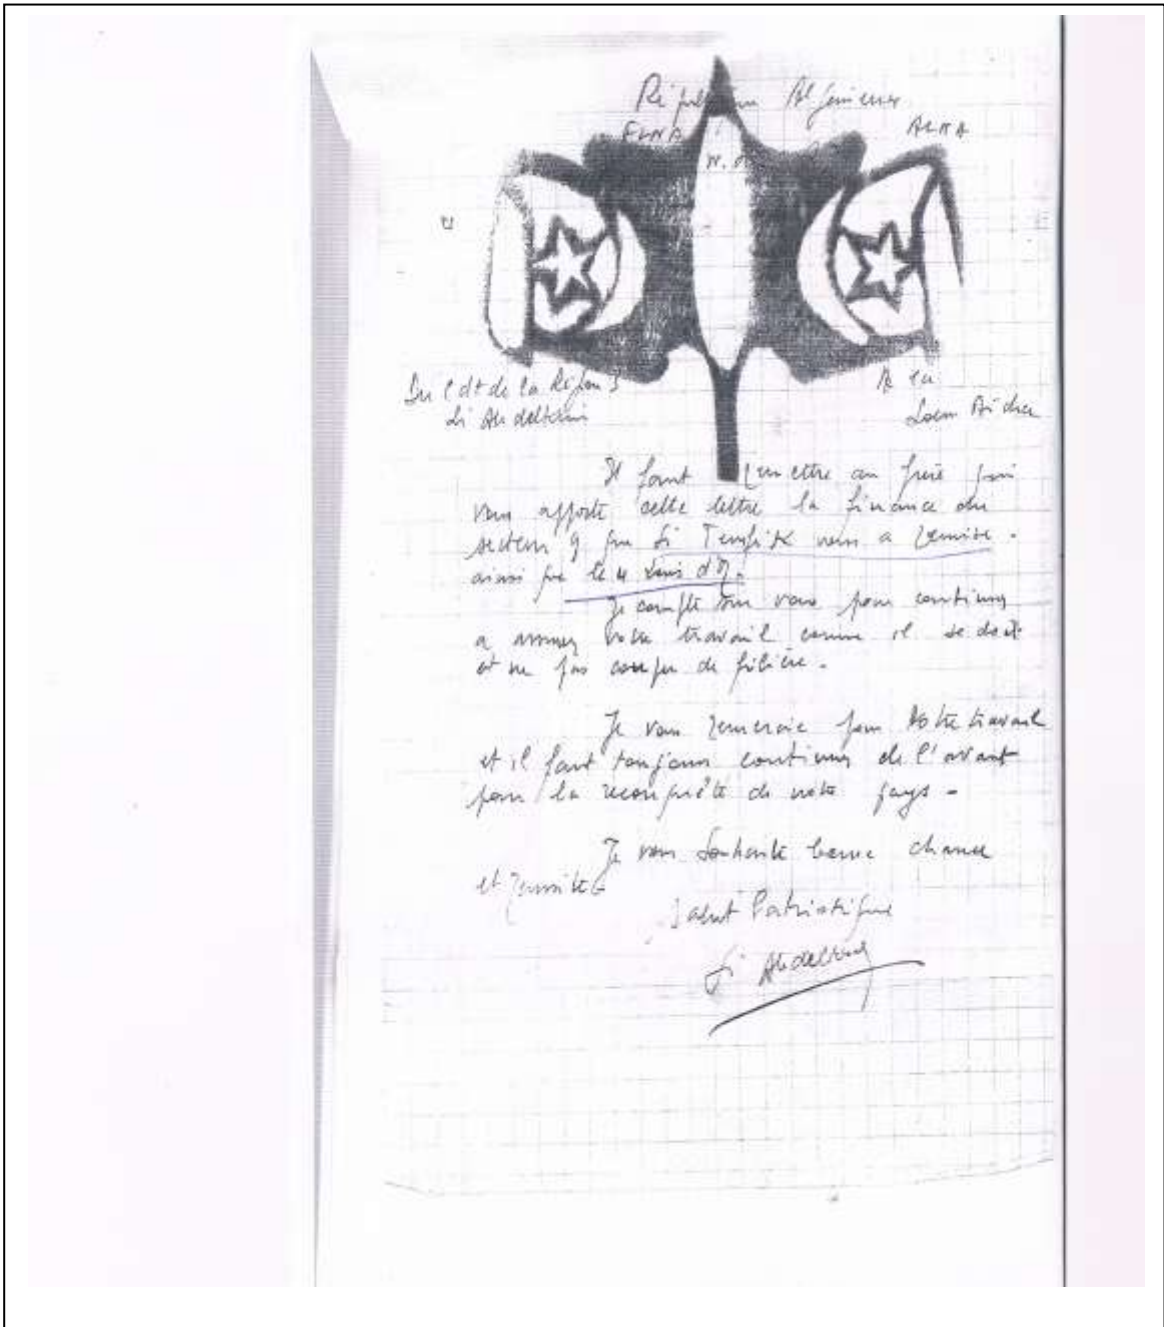 République Algérienne
FLNA ALNA
W. O
Du Cdt de la Région 3
Si Abdelkrim
A la
Soeur Aicha
Il faut remettre au frère qui
vous apporte cette lettre la finance du
secteur 9 que Si Tewfik vous a remise.
ainsi que le 4 Louis d'or.
Je compte sur vous pour continuer
a assumer votre travail comme il se doit
et ne pas couper de filière.
Je vous remercie pour votre travail
et il faut toujours continuer de l'avant
pour la reconquête de notre pays -
Je vous souhaite bonne chance
et réussite
Salut Patriotique
Si Abdelkrim